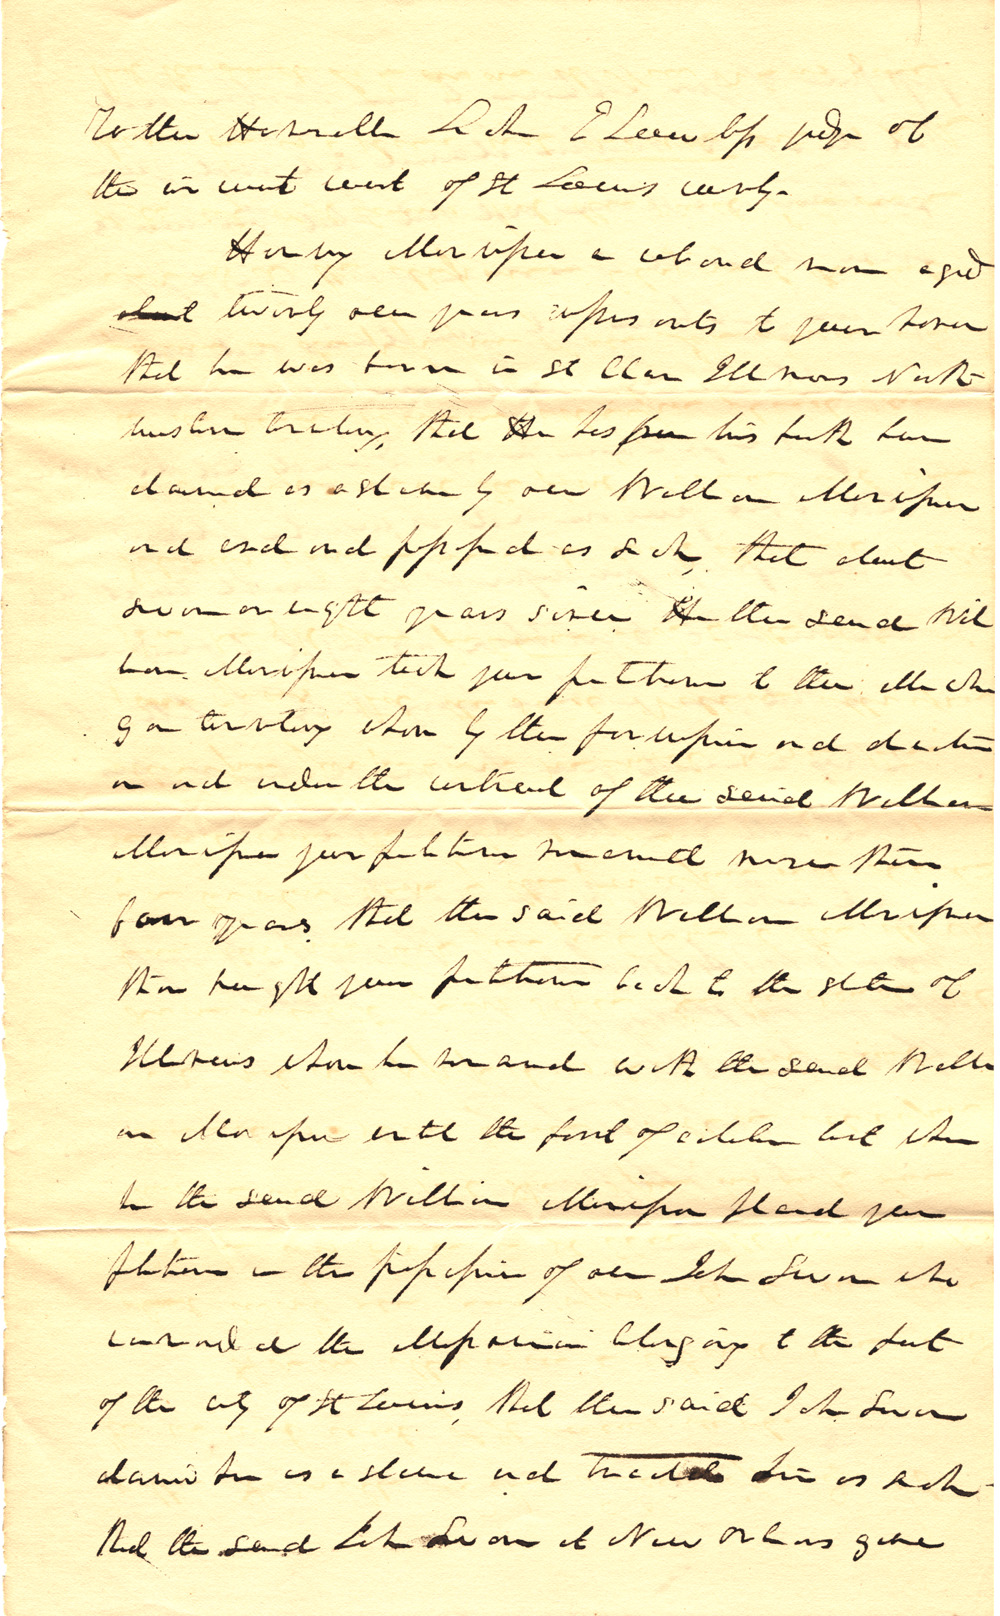 To the Honorable Luke E Lawless judge of
the circuit court of St Louis county.
Henry Morrison a colored man aged
about twenty one years represents to your honor
that he was born in St Clair Illinois North
western territory, that He has from his birth been
claimed as a slave by one William Morrison
and and possessed as such, that about
seven or eight years since He the said Wil
liam Morrison took your petitioner to the Michi
gan territory where by the permission and direction
and under the controul of the said William
Morrison your petitioner remained more than
four years. that the said William Morrison
then brought your petitioner back to the state of
Illinois where he remained with the said Willi
am Morrison until the first of october last when
he the said William Morrison placed your
petitioner in the possession of one John Swon who
commanded the Missourian belonging to the port
of the city of St Louis, that the said John Swon
claims him as a slave and treated him as such
that the said John Swon at New Orleans gave